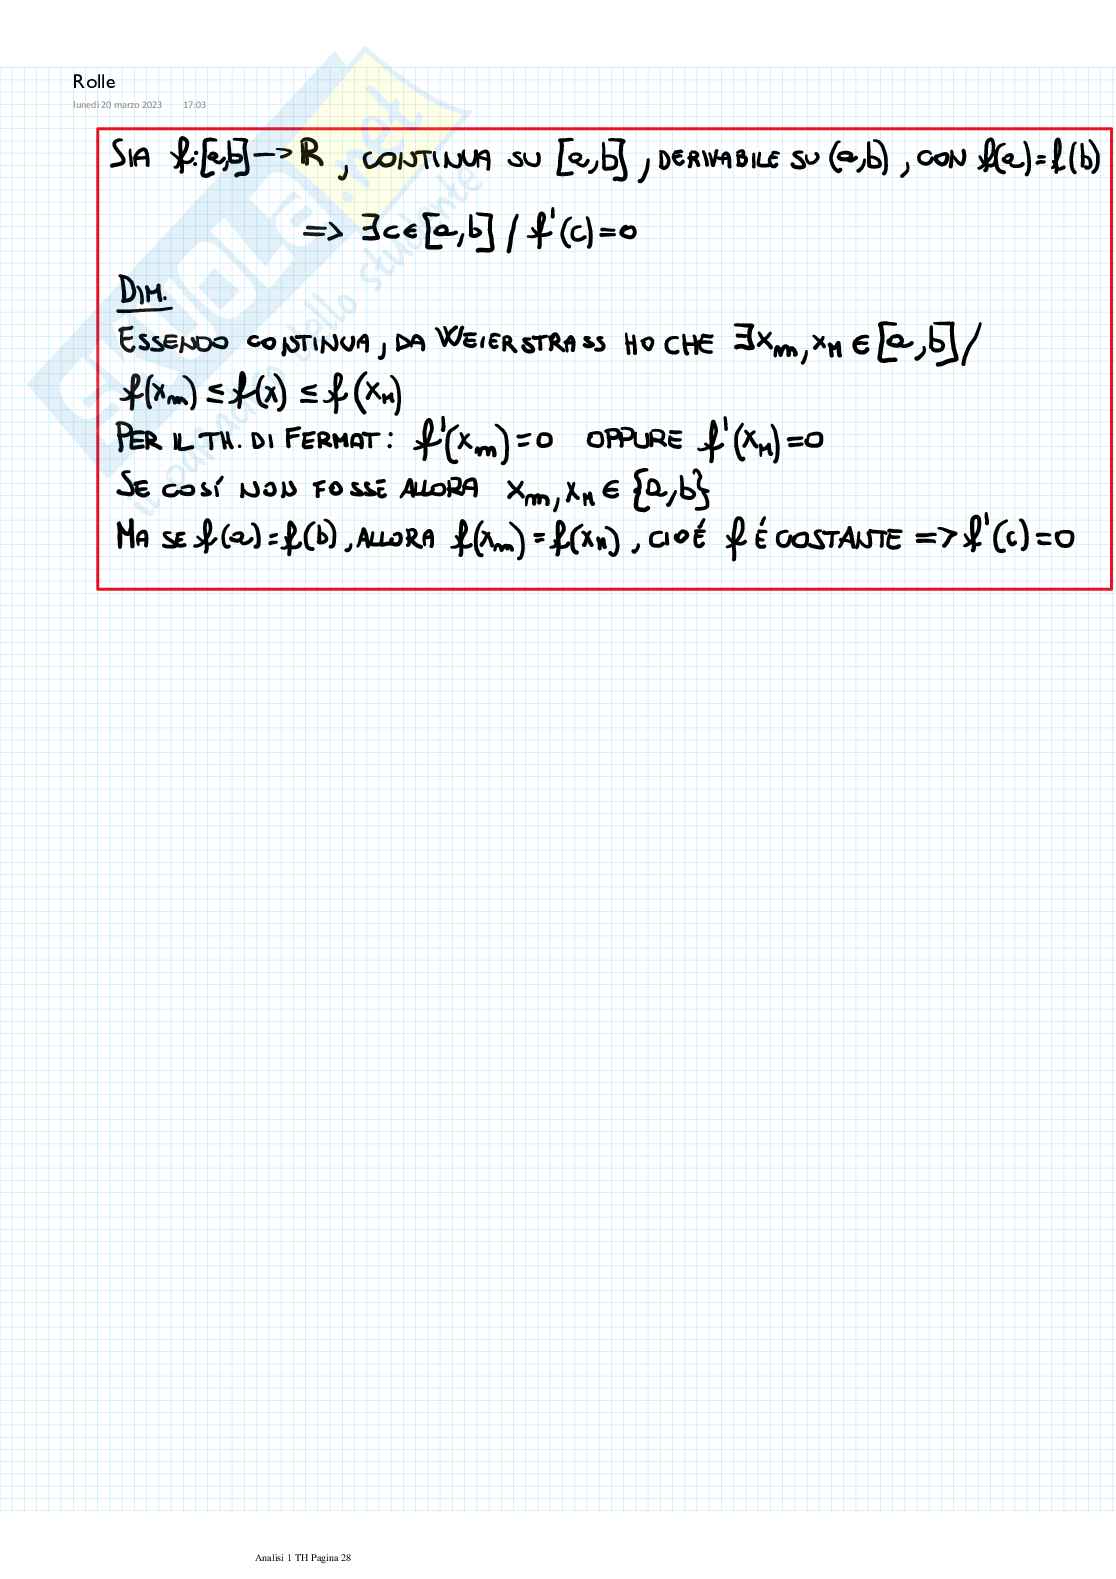 Rolle
lunedì 20 marzo 2023 17:03
SIA f:[a,b]—>R, CONTINUA SU [a,b], DERIVABILE SU (a,b), CON f(a)=f(b)
=> ∃c∈[a,b] / f'(c)=0
DIM.
ESSENDO CONTINUA, DA WEIERSTRASS HO CHE ∃xm, xM ∈ [a,b] /
f(xm) ≤ f(x) ≤ f(xM)
PER IL TH. DI FERMAT: f'(xm)=0 OPPURE f'(xM)=0
SE COSÍ NON FOSSE ALLORA xm, xM ∈ {a,b}
MA SE f(a)=f(b), ALLORA f(xm)=f(xM), CIOÉ f É COSTANTE => f'(c)=0
Analisi 1 TH Pagina 28